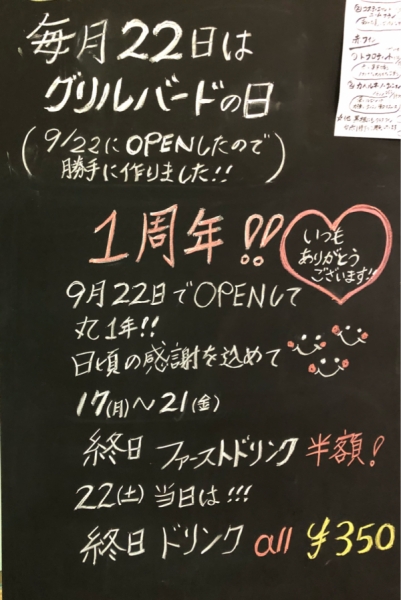 毎月22日は
グリルバードの日
(9/22にOPENしたので
勝手に作りました!!)
1周年!!
いつも
ありがとう
ございます!!
9月22日でOPENして
丸1年!!
日頃の感謝を込めて
17(月)〜21(金)
終日 ファーストドリンク 半額!
22(土)当日は!!!
終日 ドリンク all ¥350